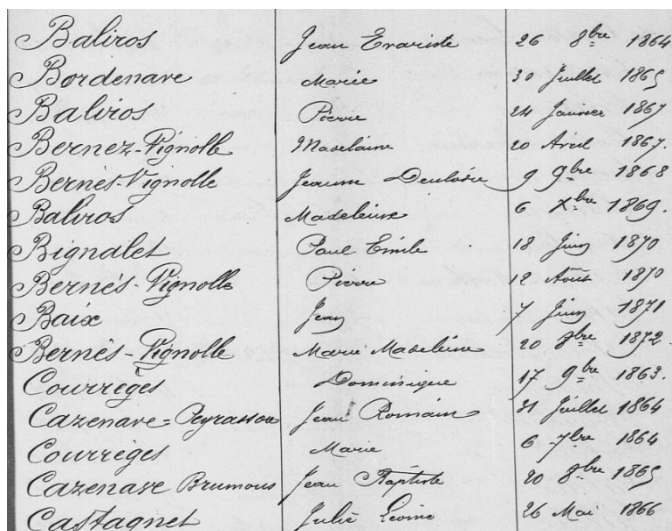 Baliros Jean Evariste 26 8bre 1864
Bordenave Marie 30 Juillet 1865
Baliros Pierre 24 Janvier 1867
Bernez-Vignolle Madelaine 20 Avril 1867.
Bernès-Vignolle Jeanne 9 9bre 1868
Baliros Madeleine 6 Xbre 1869.
Bignalet Paul Emile 18 Juin 1870
Bernès-Vignolle Pierre 12 Août 1870
Baix Jean 7 Juin 1871
Bernès-Vignolle Marie Madeleine 20 1872.
Courrèges Dominique 17 9bre 1863.
Cazenave=Peyrassou Jean Romain 31 Juillet 1864
Courrèges Marie 6 7bre 1864
Cazenave Brumous Jean Baptiste 20 8bre 1865
Castagnet Julie 26 Mai 1866